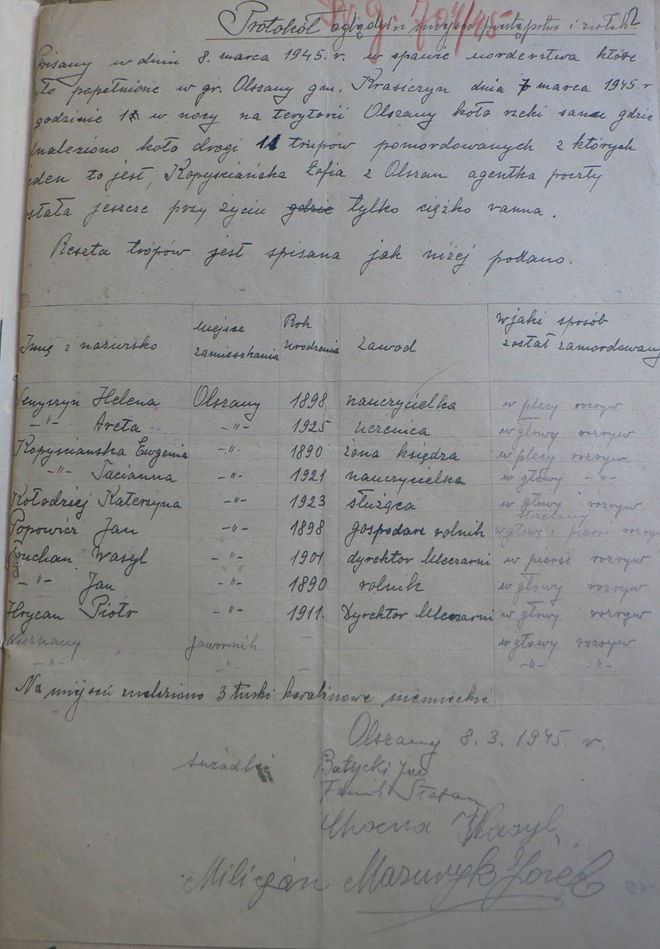 Protokół oględzin miejsca i zwłok
2
704/45
pisany w dniu 8. marca 1945. r. w sprawie morderstwa które
ło popełnione w gr. Olszany gm. Krasiczyn dnia 7 marca 1945 r
godzinie 11 w nocy na terytorii Olszany koła rzeki sanu gdzie
znaleziono koło drogi 11 trupów pomordowanych z których
jeden to jest, Kopyściańska Zofia z Olszan agentka poczty
stała jeszcze przy życiu gdzie tylko ciężko ranna.
Reseta tropów jest spisana jak niżej podano.
Imię i nazwisko Miejsce zamieszkania Rok urodzenia zawód w jaki sposób został zamordowany
Senyszyn Helena Olszany 1898 nauczycielka w plecy rozryw
-"- Areta -"- 1925 uczenica w głowy rozryw
Kopyściańska Eugenia -"- 1890 żona księdza w plecy rozryw
-"- Tacianna -"- 1921 nauczycielka w głowy -"-
Kołodziej Katerzyna -"- 1923 służąca w głowy rozryw
Popowicz Jan -"- 1898 gospodarz rolnik w głowy i piersi rozryw
Wasyl -"- 1901 dyrektor Mleczarni w piersi rozryw
-"- Jan -"- 1890 rolnik w głowy rozryw
Hrycan Piotr -"- 1911. Dyrektor Mleczarni w głowy rozryw
Nieznany Jawornik - w głowy rozryw
-"- -"- -"- -"-
Na miejscu znaleziono 3 łuski karabinowe niemieckie.
Olszany 8. 3. 1945. r.
świadki Batycki Jan
Stefan
Wasyl,
Milicjan Mazuryk Józef